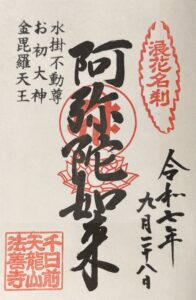 浪花名刹
水掛不動尊
お初大神
金毘羅天王
阿弥陀如来
令和七年
九月二十八日
千日前
天龍山
法善寺